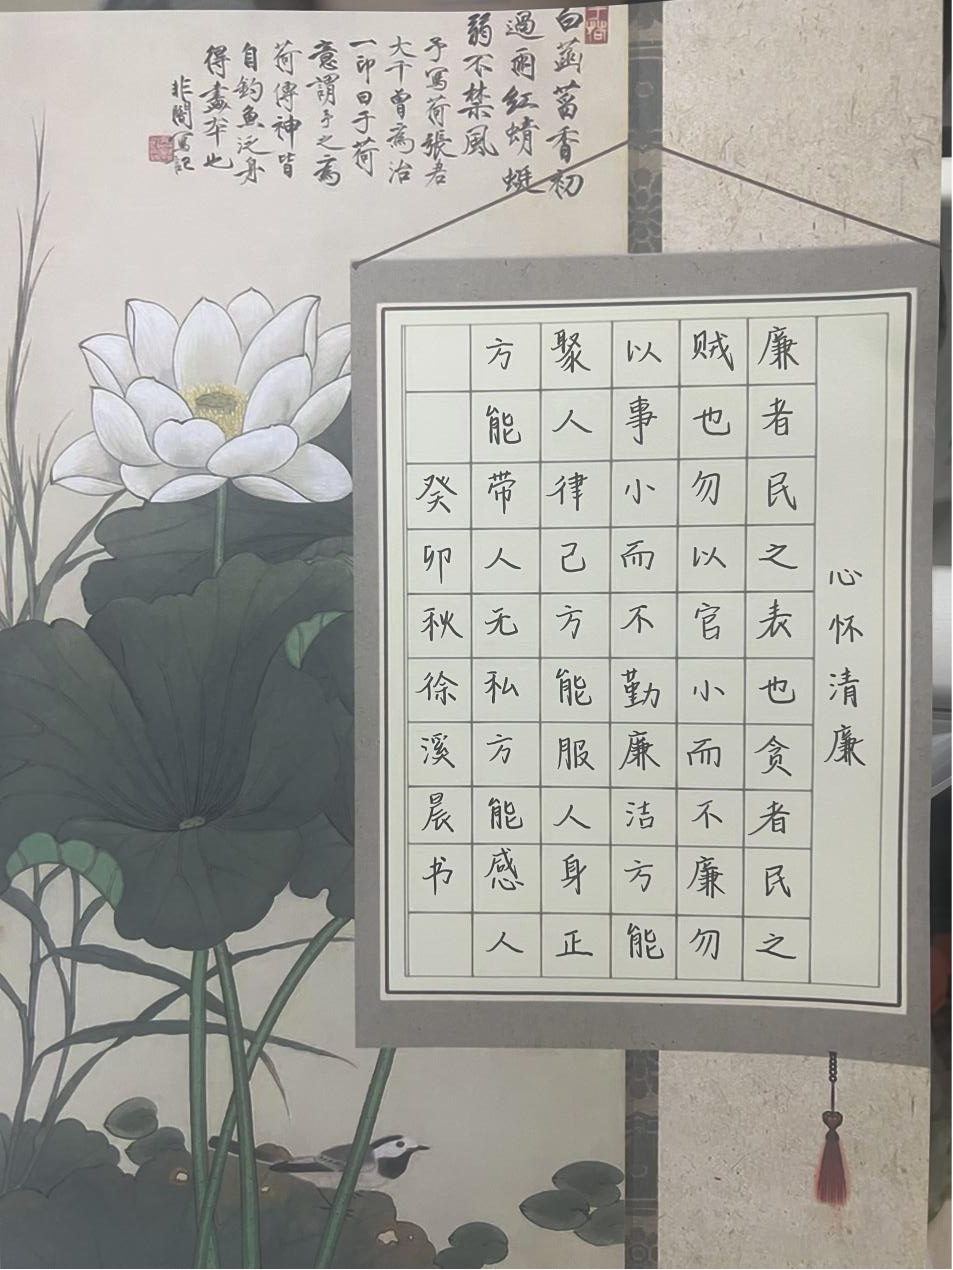 心怀清廉
廉者民之表也贪者民之
贼也勿以官小而不廉勿
以事小而不勤廉洁方能
聚人律己方能服人身正
方能带人无私方能感人
癸卯秋徐溪晨书
白菡萏香初
過雨红蜻蜓
弱不禁風
予写荷張君
大千曾為治
一印曰于荷
意謂予之為
荷傳神皆
自钓魚泛舟
得畫本也
非闇写記